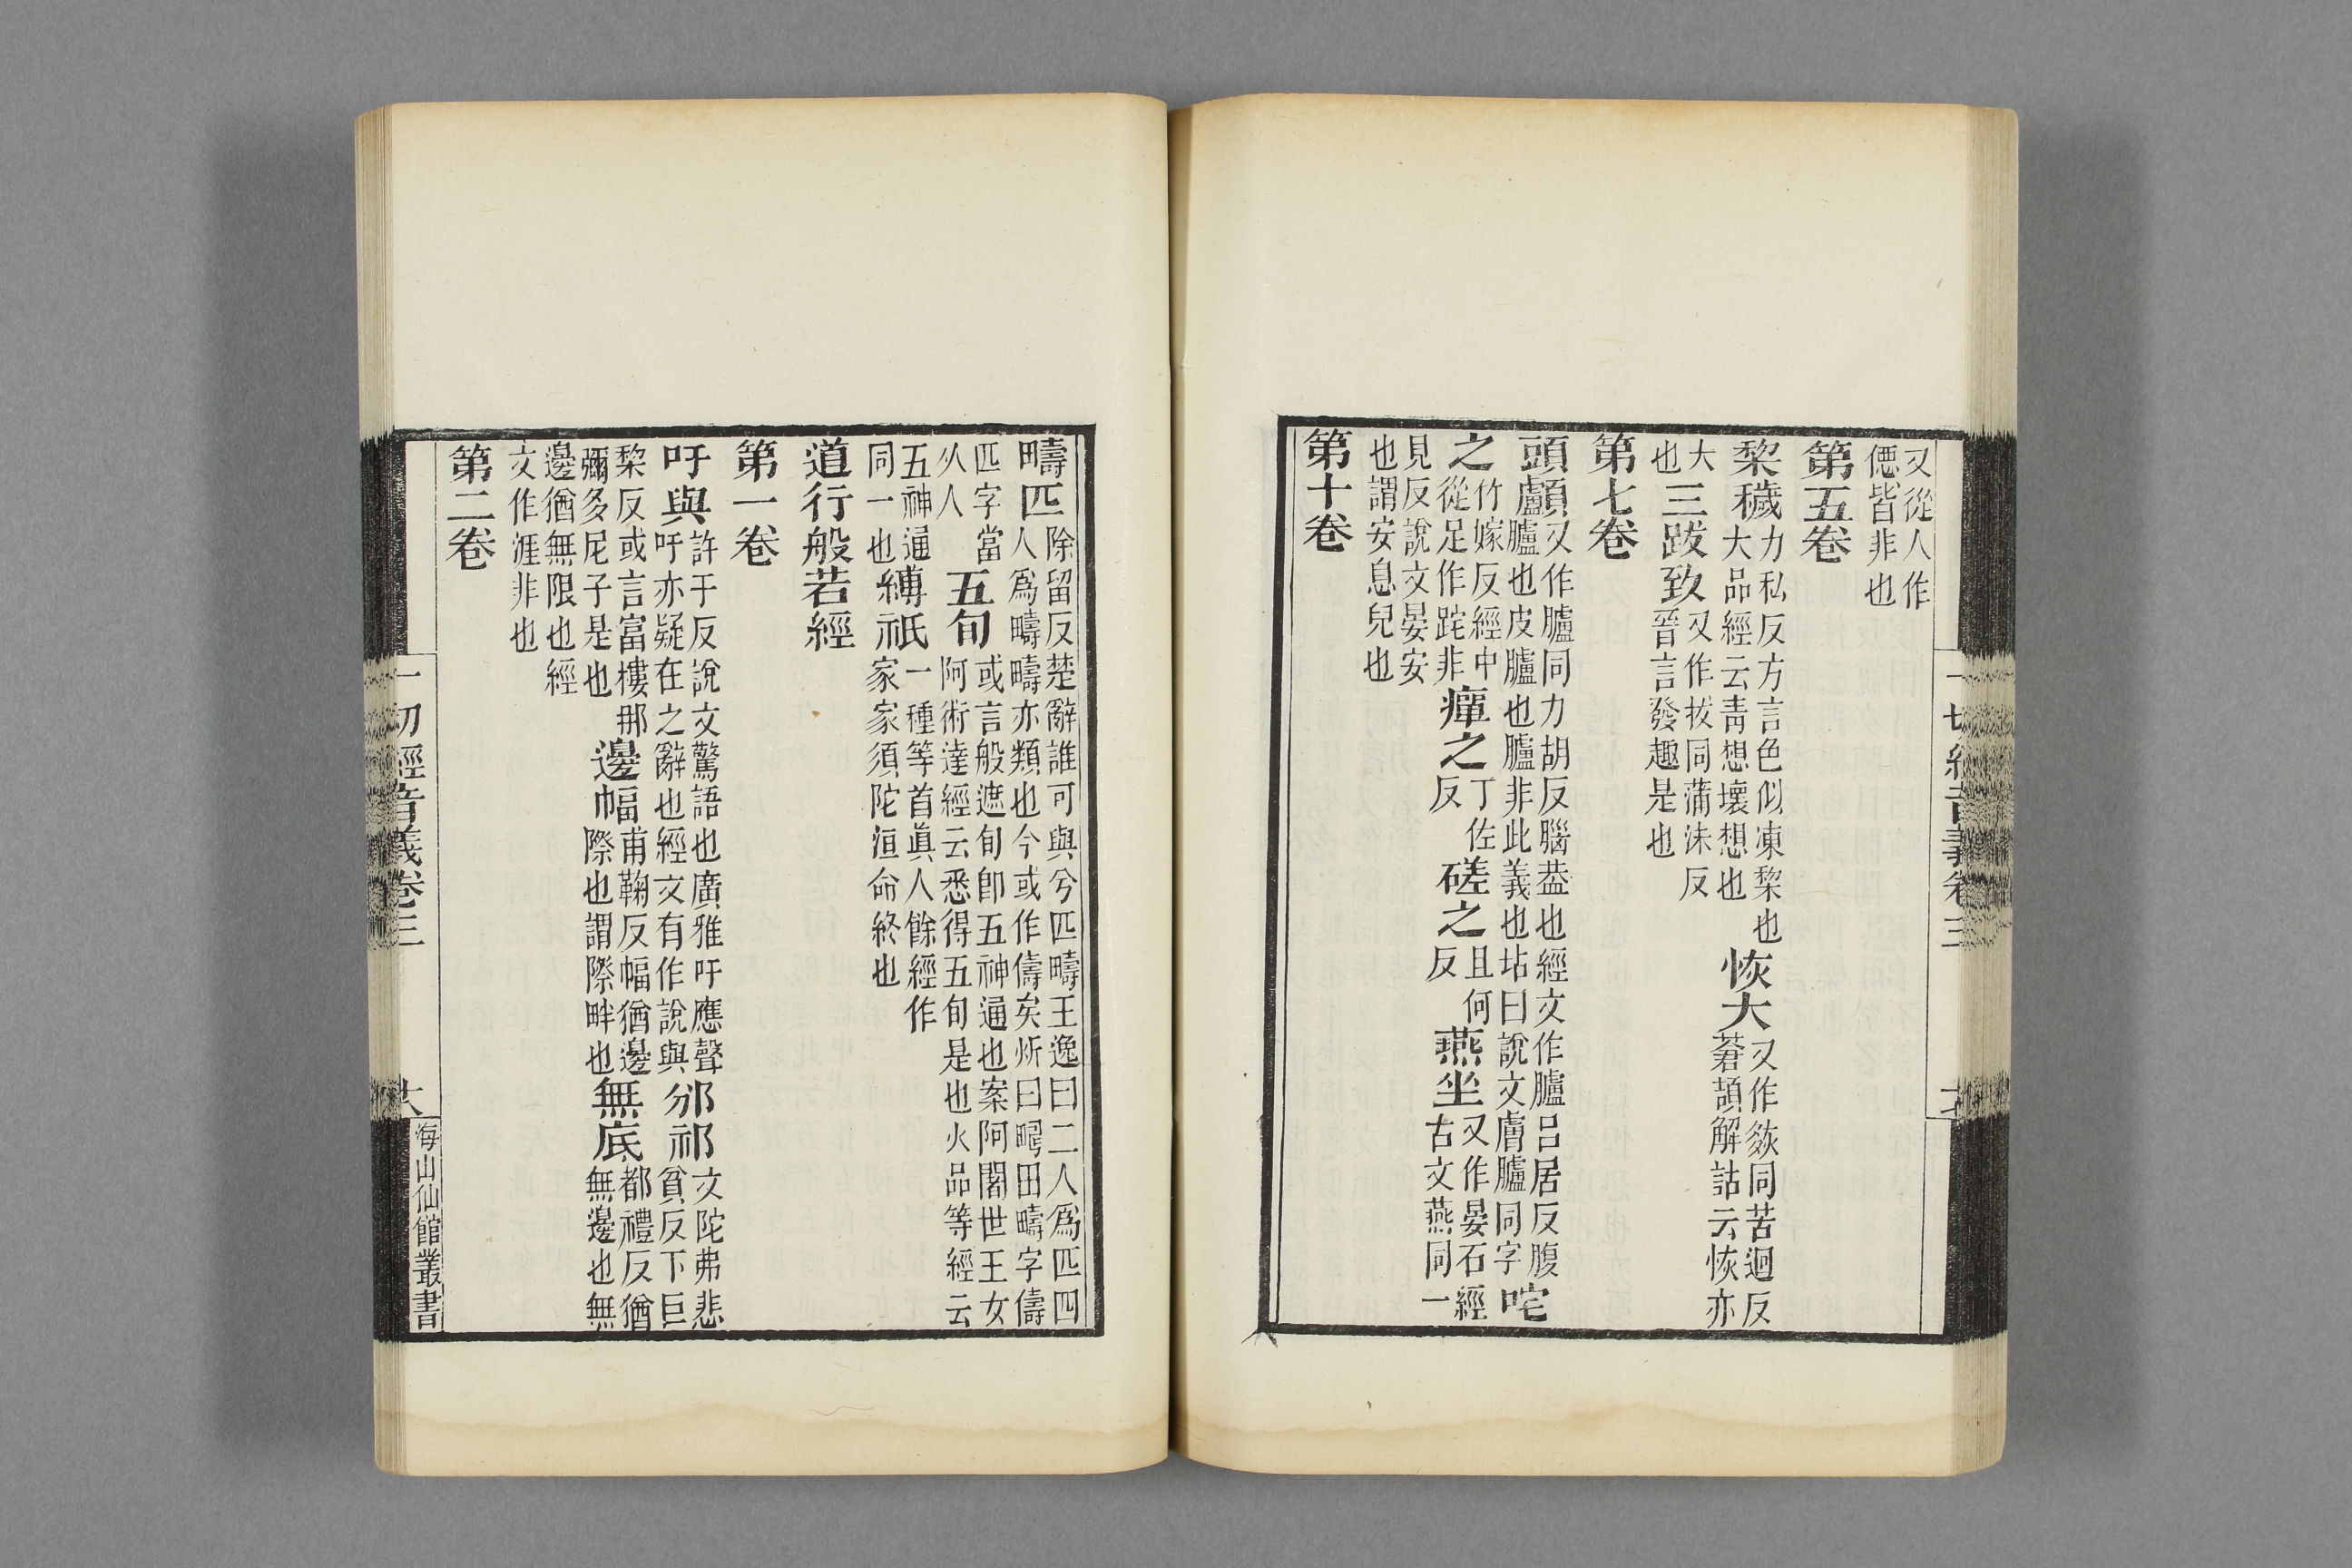 又從人作
偲皆非也
第五卷
棃穢力私反方言色似凍棃也大品經云靑想壞想也恢大又作㷇同苦迴反蒼頡解詁云恢亦
大也三跋致又作拔同蒲沬反晉言發趣是也
第七卷
頭顱又作臚同力胡反腦葢也經文作臚呂居反腹臚也皮臚也臚非此義也坫曰說文膚臚同字咤
之竹嫁反經中從足作跎非癉之丁佐反磋之且何反燕坐又作晏石經古文燕同一
見反說文晏安也謂安息皃也
第十卷
一切經音義卷三
疇匹除留反楚辭誰可與兮匹疇王逸曰二人爲匹四人爲疇疇亦類也今或作儔矣炘曰疇田疇字儔
匹字當从人五旬或言般遮旬卽五神通也案阿闍世王女阿術達經云悉得五旬是也火品等經云
五神通同一也縛祇一種等首眞人餘經作家家須陀洹命終也
道行般若經
第一卷
吁與許于反說文驚語也廣雅吁應聲吁亦疑在之辭也經文有作說與邠祁文陀弗悲貧反下巨
棃反或言富樓那彌多尼子是也邊幅甫鞠反幅猶邊際也謂際畔也無底都禮反猶無邊也無
邊猶無限也經文作涯非也
第二卷
一切經音義卷三
海山仙館叢書